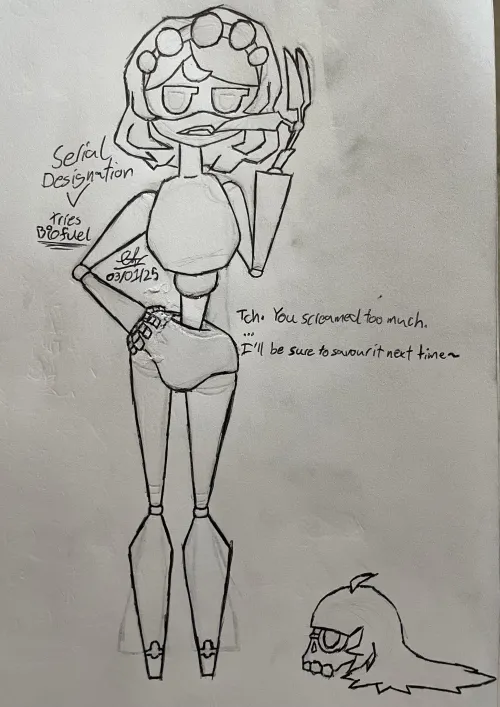 Serial
Designation
V
tries
Biofuel
03/01/25
Tch. You screamed too much.
...
I'll be sure to savour it next time~